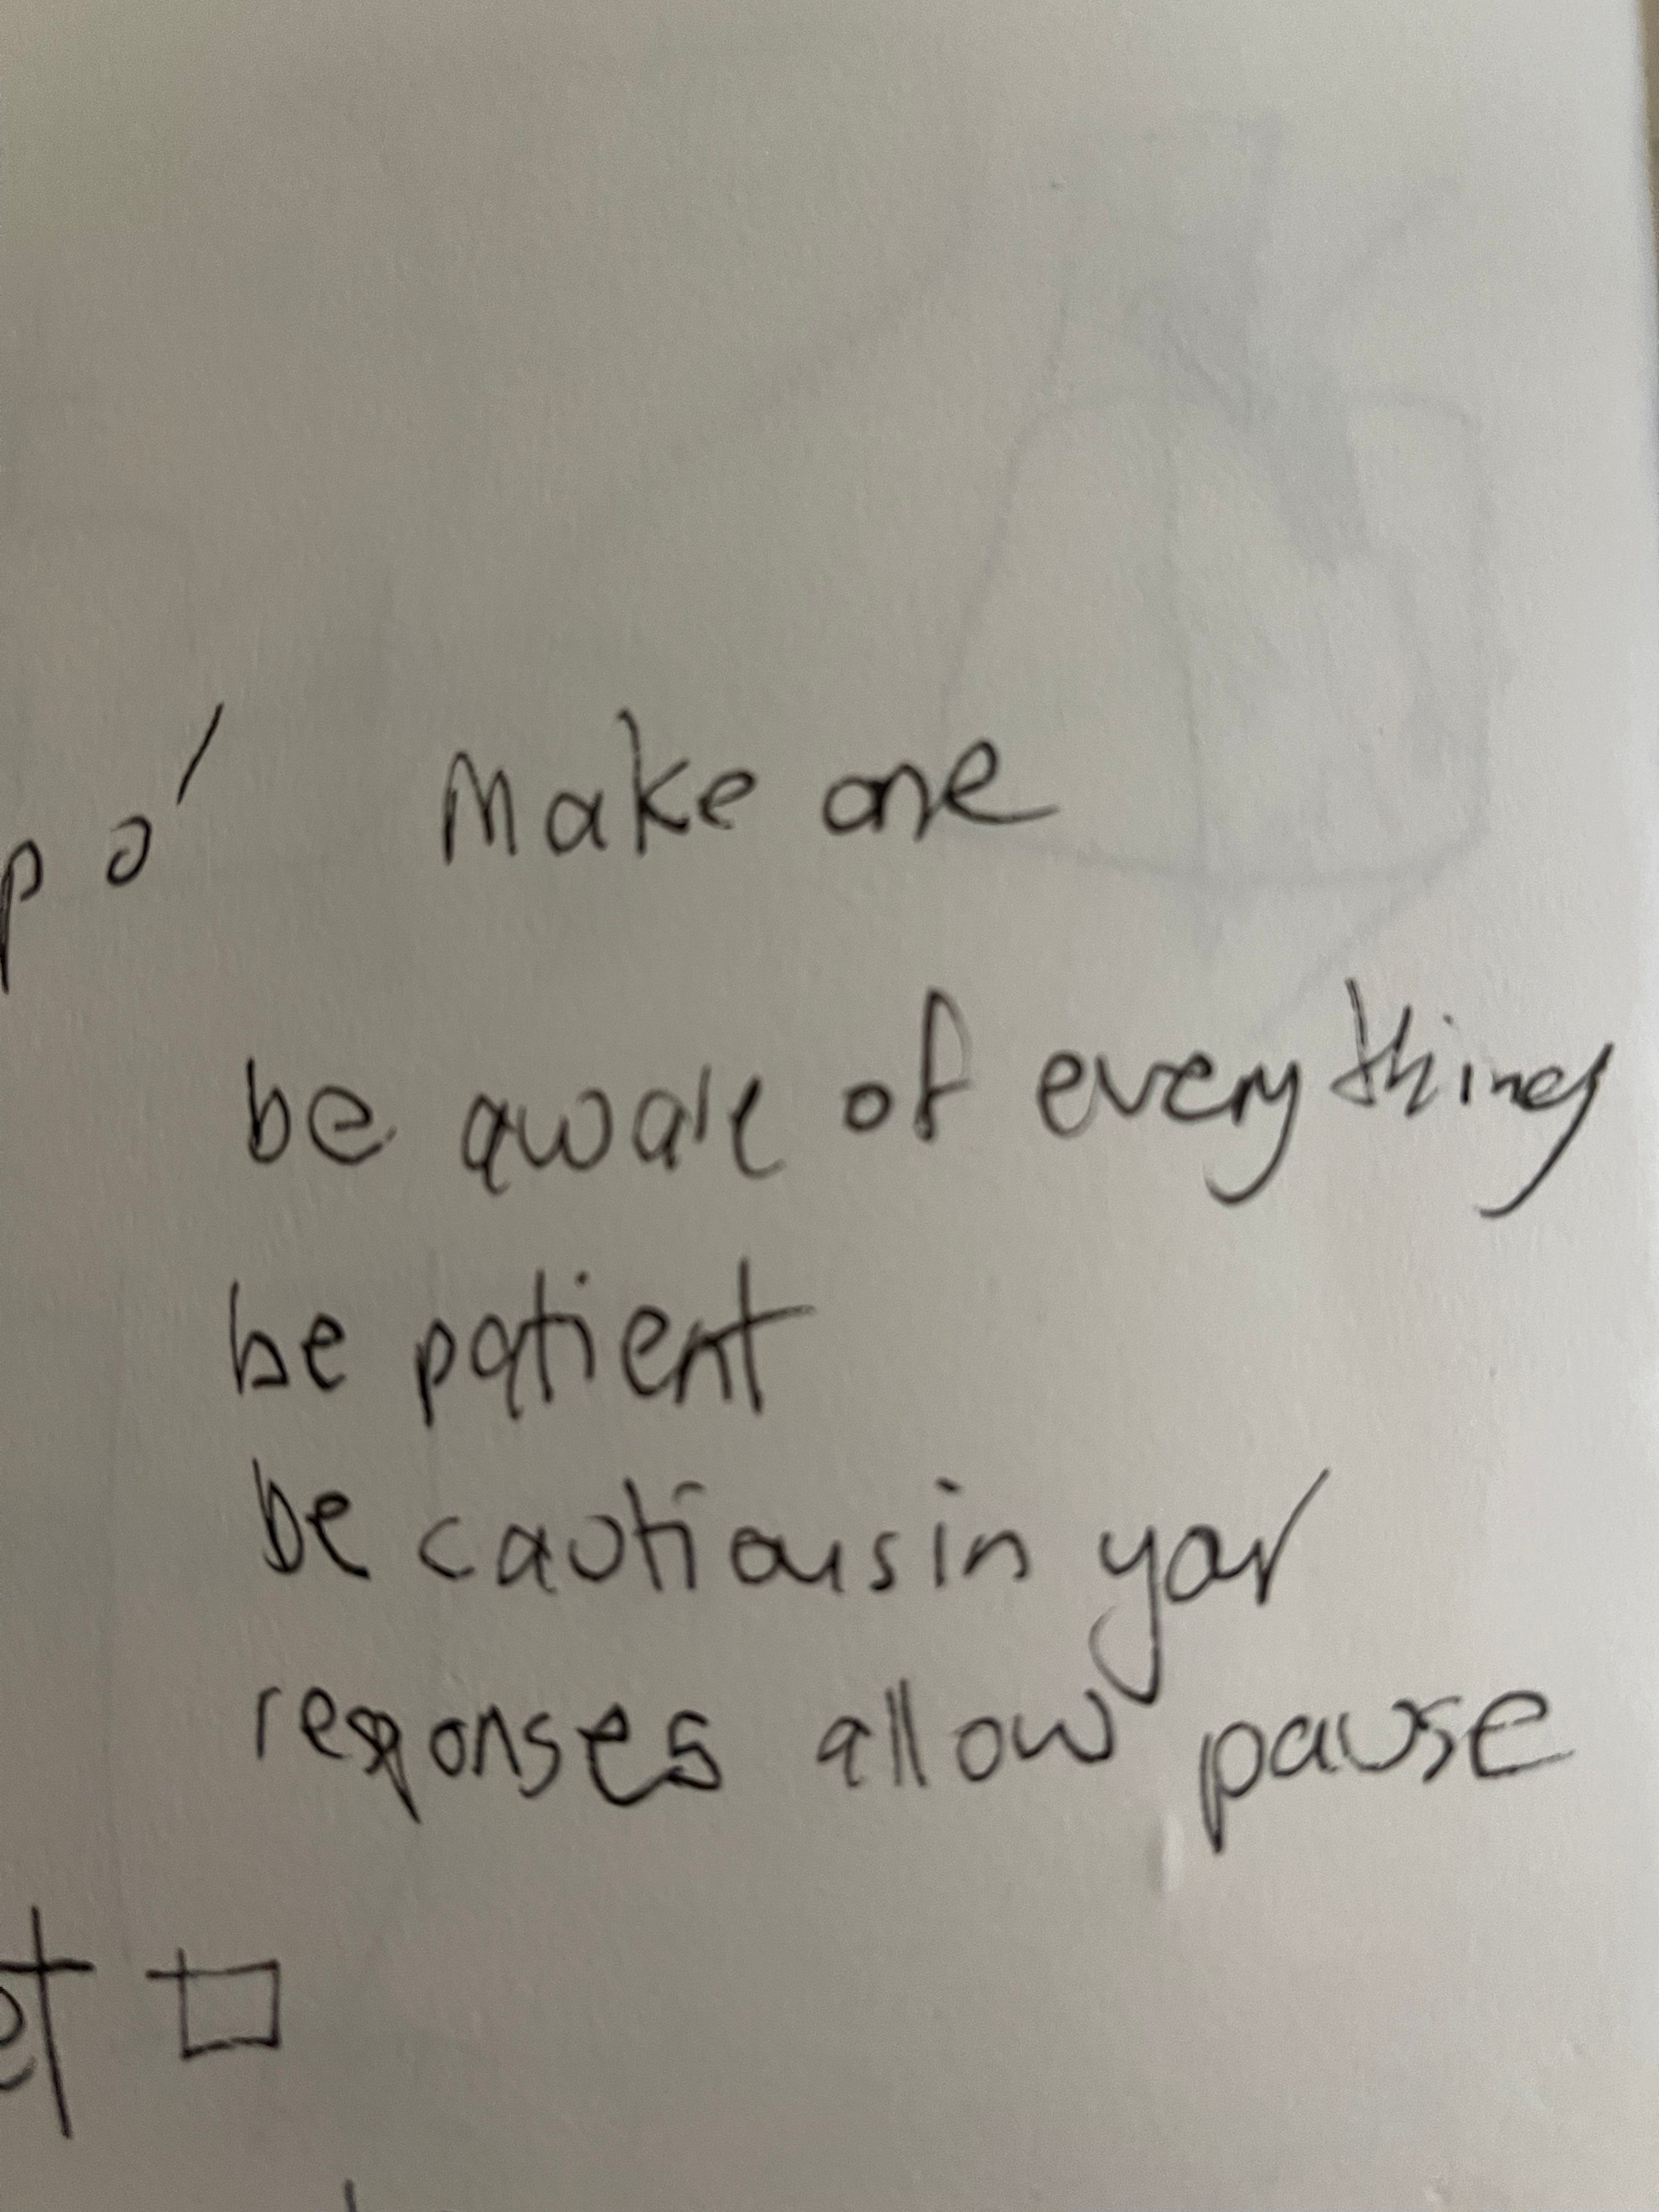 po' Make one
be aware of everything
be patient
be cautious in your
responses allow pause